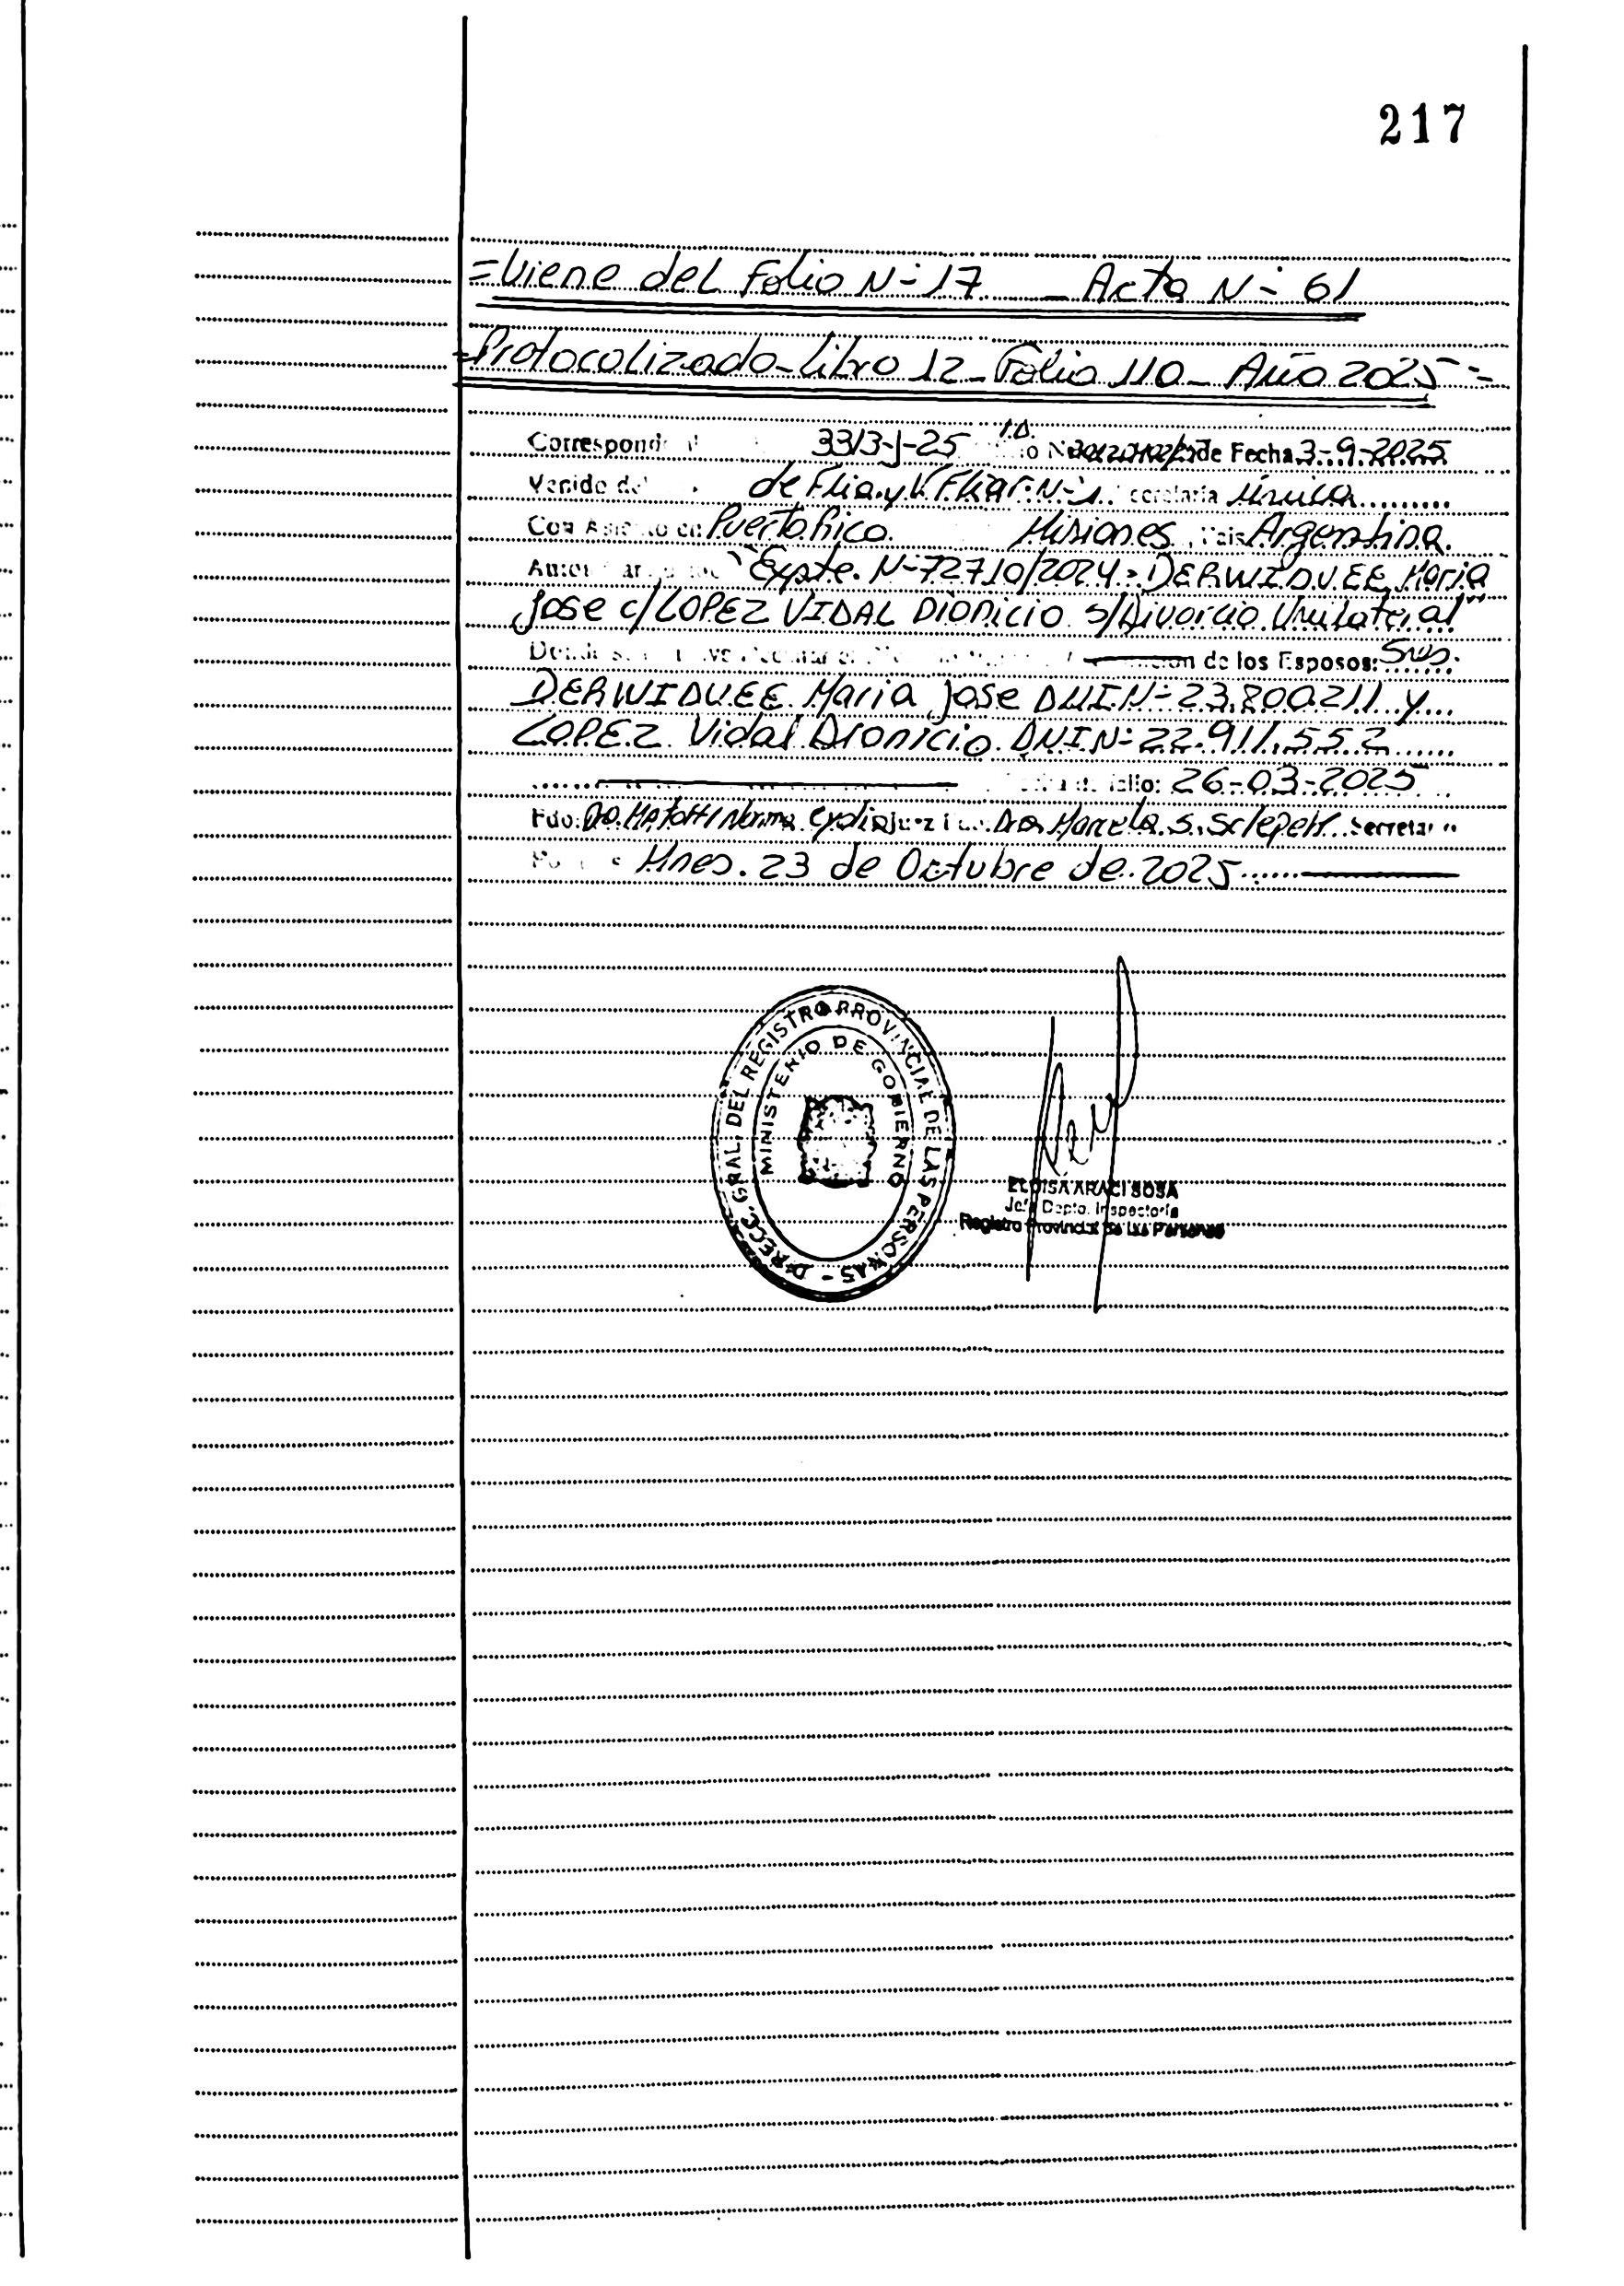 217
=Viene del Folio N-17 - Acta N- 61
-Protocolizado-Libro 12-Folio 110- Año 2025-=
Correspond 3313-J-25 de Fecha 3-9-2025
Venido del de Flia. y V. Fliar. N-1 Secretaría Única
Con Asiento en Puerto Rico. Misiones, País Argentina.
"Expte. N-72710/2024- DERWIDUEE Maria
Jose c/ LOPEZ VIDAL Dionicio s/Divorcio Unilateral"
de los Esposos: Sres.
DERWIDUEE Maria Jose DNI N-23.800.211 y
LOPEZ Vidal Dionicio DNI N-22.911.552
fallo: 26-03-2025
Fdo: Juez Dra. Marcela S. Secretar
Mnes. 23 de Octubre de 2025
DIRECC. GRAL. DEL REGISTRO PROVINCIAL DE LAS PERSONAS -
MINISTERIO DE GOBIERNO
ELOISA ARACI SOSA
Jefe Depto. Inspectoría
Registro Provincial de las Personas